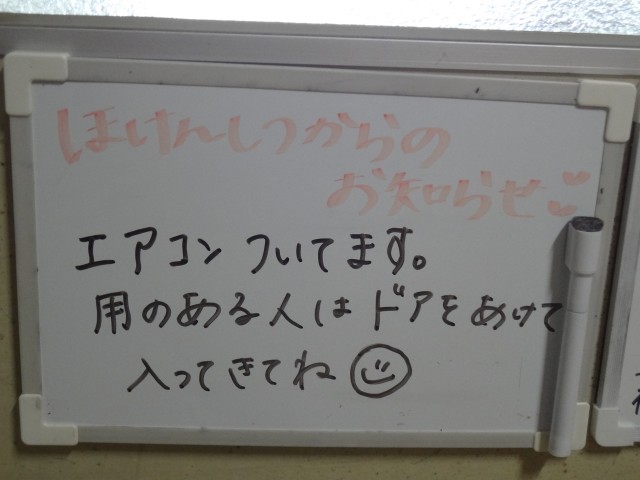 ほけんしつからの
お知らせ♥
エアコンついてます。
用のある人はドアをあけて
入ってきてね☺